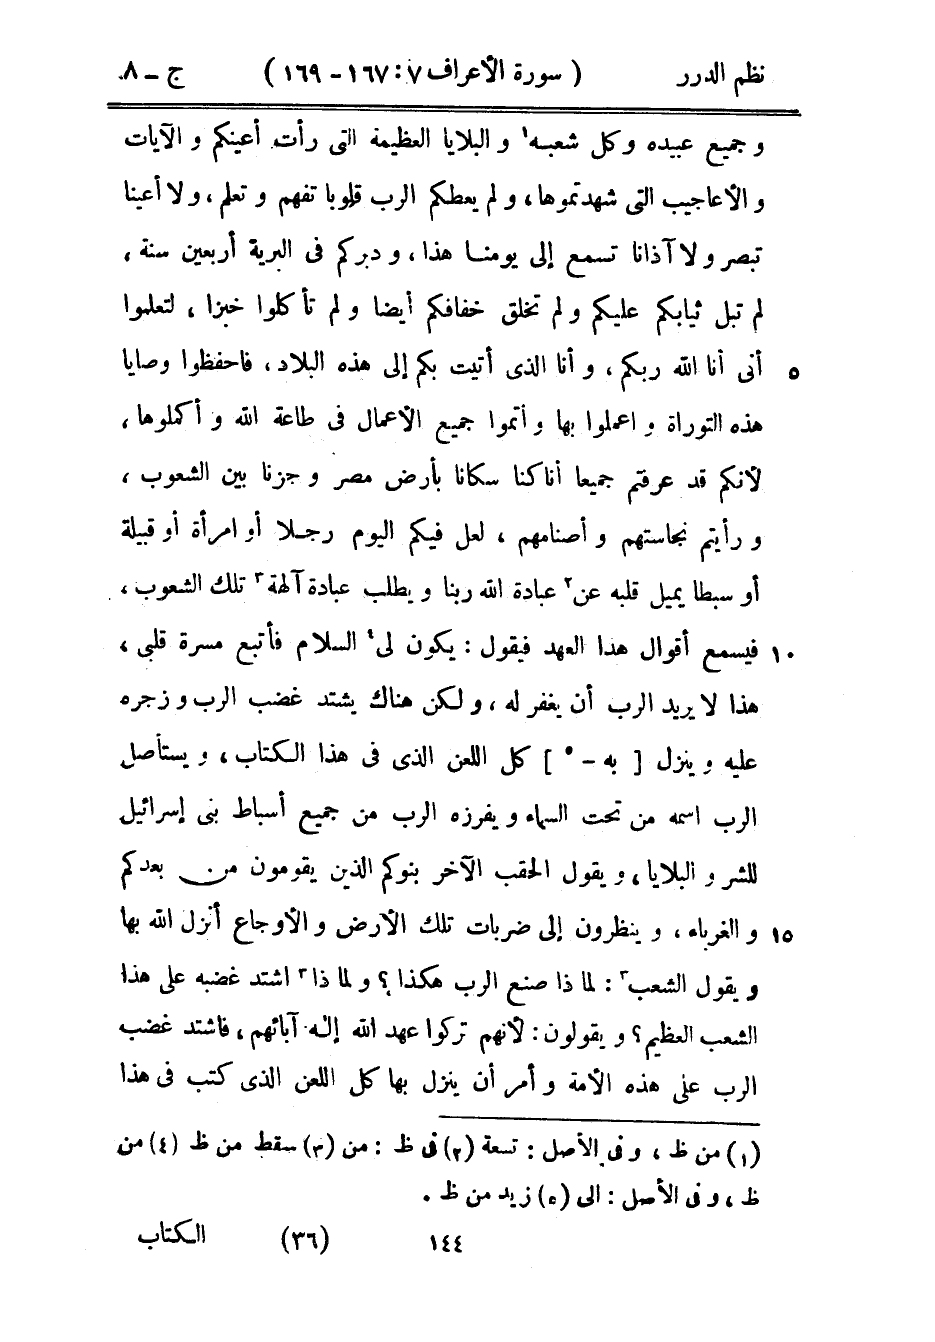 نظم الدرر ( سورة الأعراف ٧ : ١٦٧ - ١٦٩ ) ج - ٨
و جميع عبيده وكل شعبه١ و البلايا العظيمة التى رأت أعينكم و الآيات
و الأعاجيب التى شهدتموها، و لم يعطكم الرب قلوبا تفهم و تعلم، و لا أعينا
تبصر و لا آذانا تسمع إلى يومنا هذا، و دبركم فى البرية أربعين سنة،
لم تبل ثيابكم عليكم و لم تخلق خفافكم أيضا و لم تأكلوا خبزا، لتعلموا
٥ أنى أنا الله ربكم، و أنا الذى أتيت بكم إلى هذه البلاد، فاحفظوا وصايا
هذه التوراة و اعملوا بها و أتموا جميع الأعمال فى طاعة الله و أكملوها،
لأنكم قد عرفتم جميعا أنا كنا سكانا بأرض مصر و جزنا بين الشعوب،
و رأيتم نجاستهم و أصنامهم، لعل فيكم اليوم رجلا أو امرأة أو قبيلة
أو سبطا يميل قلبه عن٢ عبادة الله ربنا و يطلب عبادة آلهة٣ تلك الشعوب،
١٠ فيسمع أقوال هذا العهد فيقول: يكون لى٤ السلام فأتبع مسرة قلبى،
هذا لا يريد الرب أن يغفر له، و لكن هناك يشتد غضب الرب و زجره
عليه و ينزل [ به - ٥ ] كل اللعن الذى فى هذا الكتاب، و يستأصل
الرب اسمه من تحت السماء و يفرزه الرب من جميع أسباط بنى إسرائيل
للشر و البلايا، و يقول الحقب الآخر بنوكم الذين يقومون من بعدكم
١٥ و الغرباء، و ينظرون إلى ضربات تلك الأرض و الأوجاع أنزل الله بها
و يقول الشعب٣: لما ذا صنع الرب هكذا؟ و لما ذا٣ اشتد غضبه على هذا
الشعب العظيم؟ و يقولون: لأنهم تركوا عهد الله إله آبائهم، فاشتد غضب
الرب على هذه الأمة و أمر أن ينزل بها كل اللعن الذى كتب فى هذا
(١) من ظ، و فى الأصل: تسعة (٢) فى ظ: من (٣) سقط من ظ (٤) من
ظ، و فى الأصل: الى (٥) زيد من ظ.
١٤٤ (٣٦) الكتاب